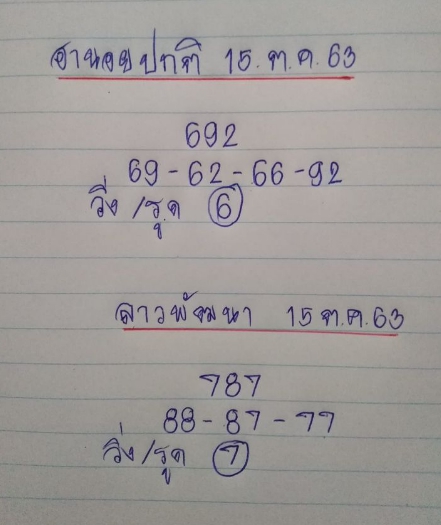 ฮานอยปกติ 15.ต.ค.63
692
69-62-66-92
วิ่ง/รูด 6
ลาวพัฒนา 15 ต.ค.63
787
88-87-77
วิ่ง/รูด 7